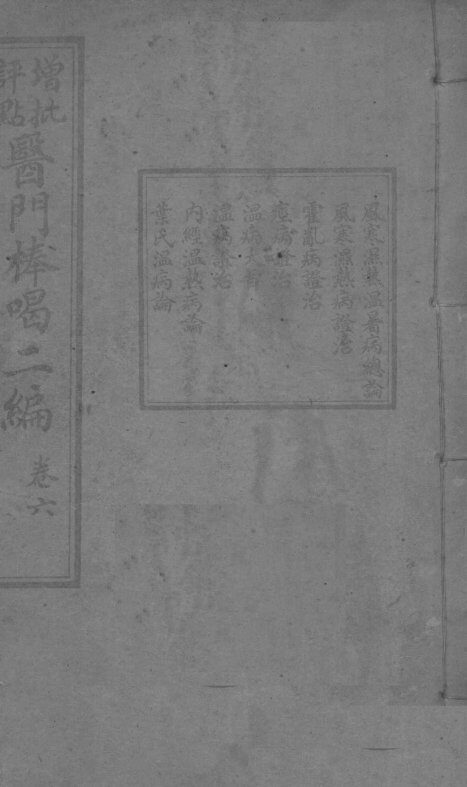 風寒濕熱溫暑病總論
風寒濕熱病證治
霍亂病證治
瘧病證治
溫病
溫病證治
內經溫熱病論
葉氏溫病論
增批
評點
醫門棒喝二編
卷六